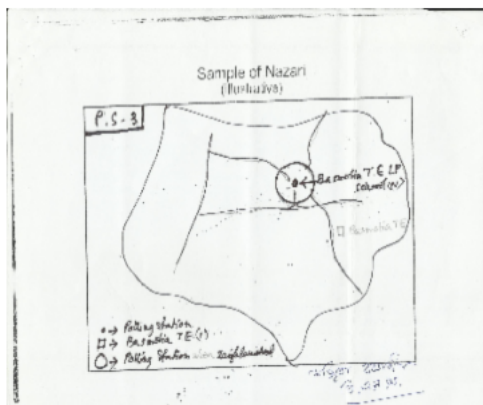 Sample of Nazari
(Illustrative)
P.S-3
Basmatia T.E LP
school
Basmatia T.E
Polling station
Basmatia T.E (1)
Polling Station